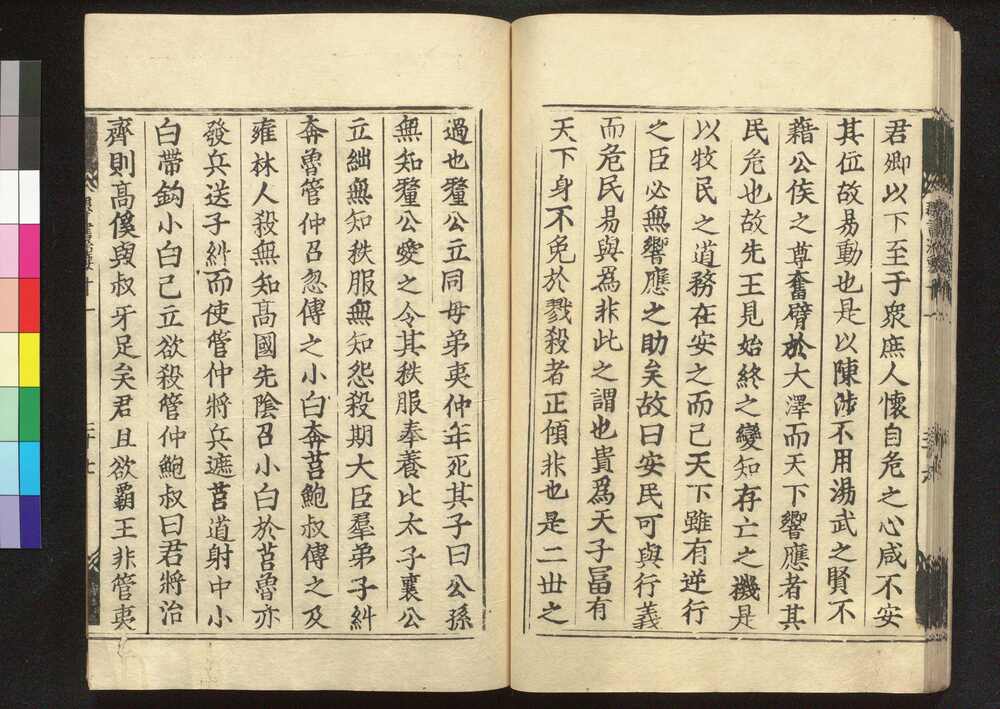 君卿以下至于衆庶人懷自危之心咸不安
其位故易動也是以陳涉不用湯武之賢不
藉公侯之尊奮臂於大澤而天下響應者其
民危也故先王見始終之變知存亡之機是
以牧民之道務在安之而已天下雖有逆行
之臣必無響應之助矣故曰安民可與行義
而危民易與爲非此之謂也貴爲天子冨有
天下身不免於戮殺者正傾非也是二世之
過也釐公立同母弟夷仲年死其子曰公孫
無知釐公愛之令其秩服奉養比太子襄公
立絀無知秩服無知怨殺期大臣羣弟子糾
奔魯管仲召忽傅之小白奔莒鮑叔傅之及
雍林人殺無知髙國先陰召小白於莒魯亦
發兵送子糾而使管仲將兵遮莒道射中小
白帶鈎小白已立欲殺管仲鮑叔曰君將治
齊則髙傒與叔牙足矣君且欲霸王非管夷